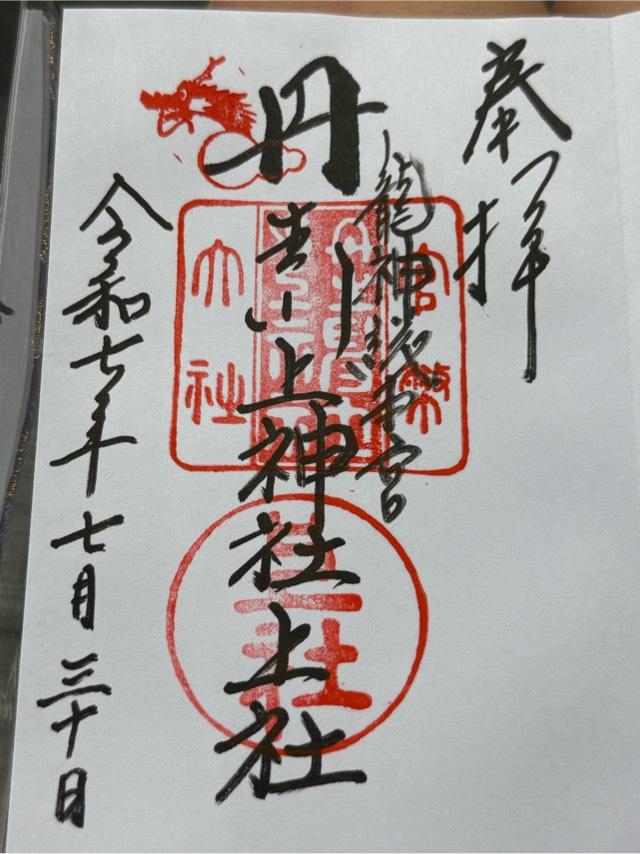 奉拝
龍神総本宮
丹生川上神社上社
官幣大社
丹生川上神社
上社
令和七年七月三十日